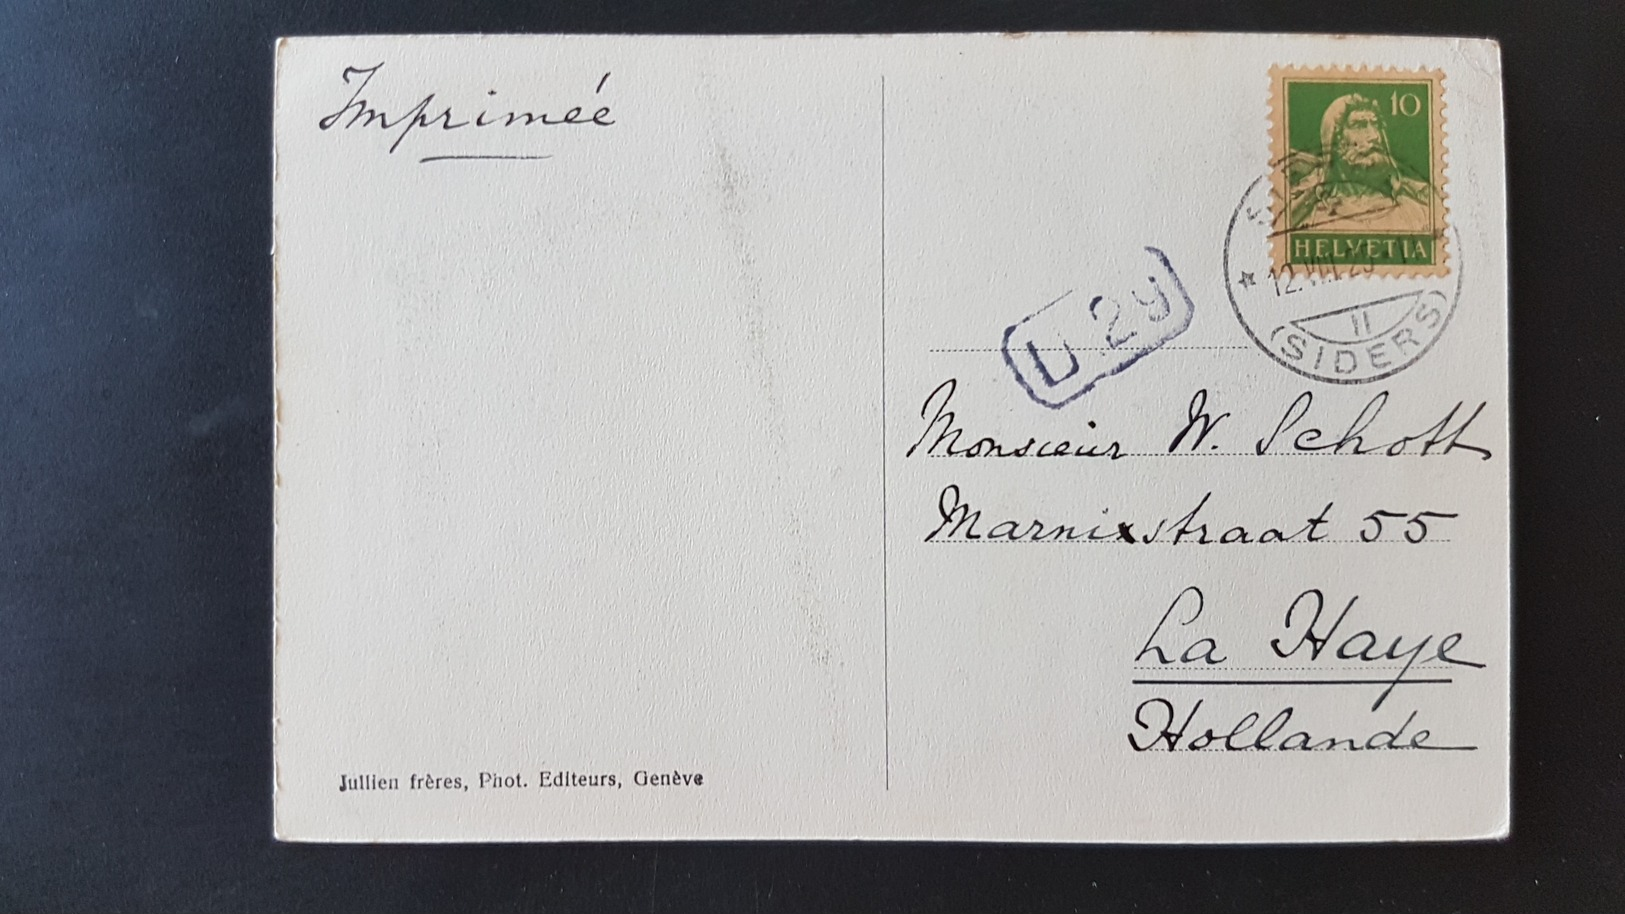 Imprimée
10
HELVETIA
(SIDERS)
II
U 2y
Monsieur W. Schott
Marnixstraat 55
La Haye
Hollande
Jullien frères, Phot. Editeurs, Genève